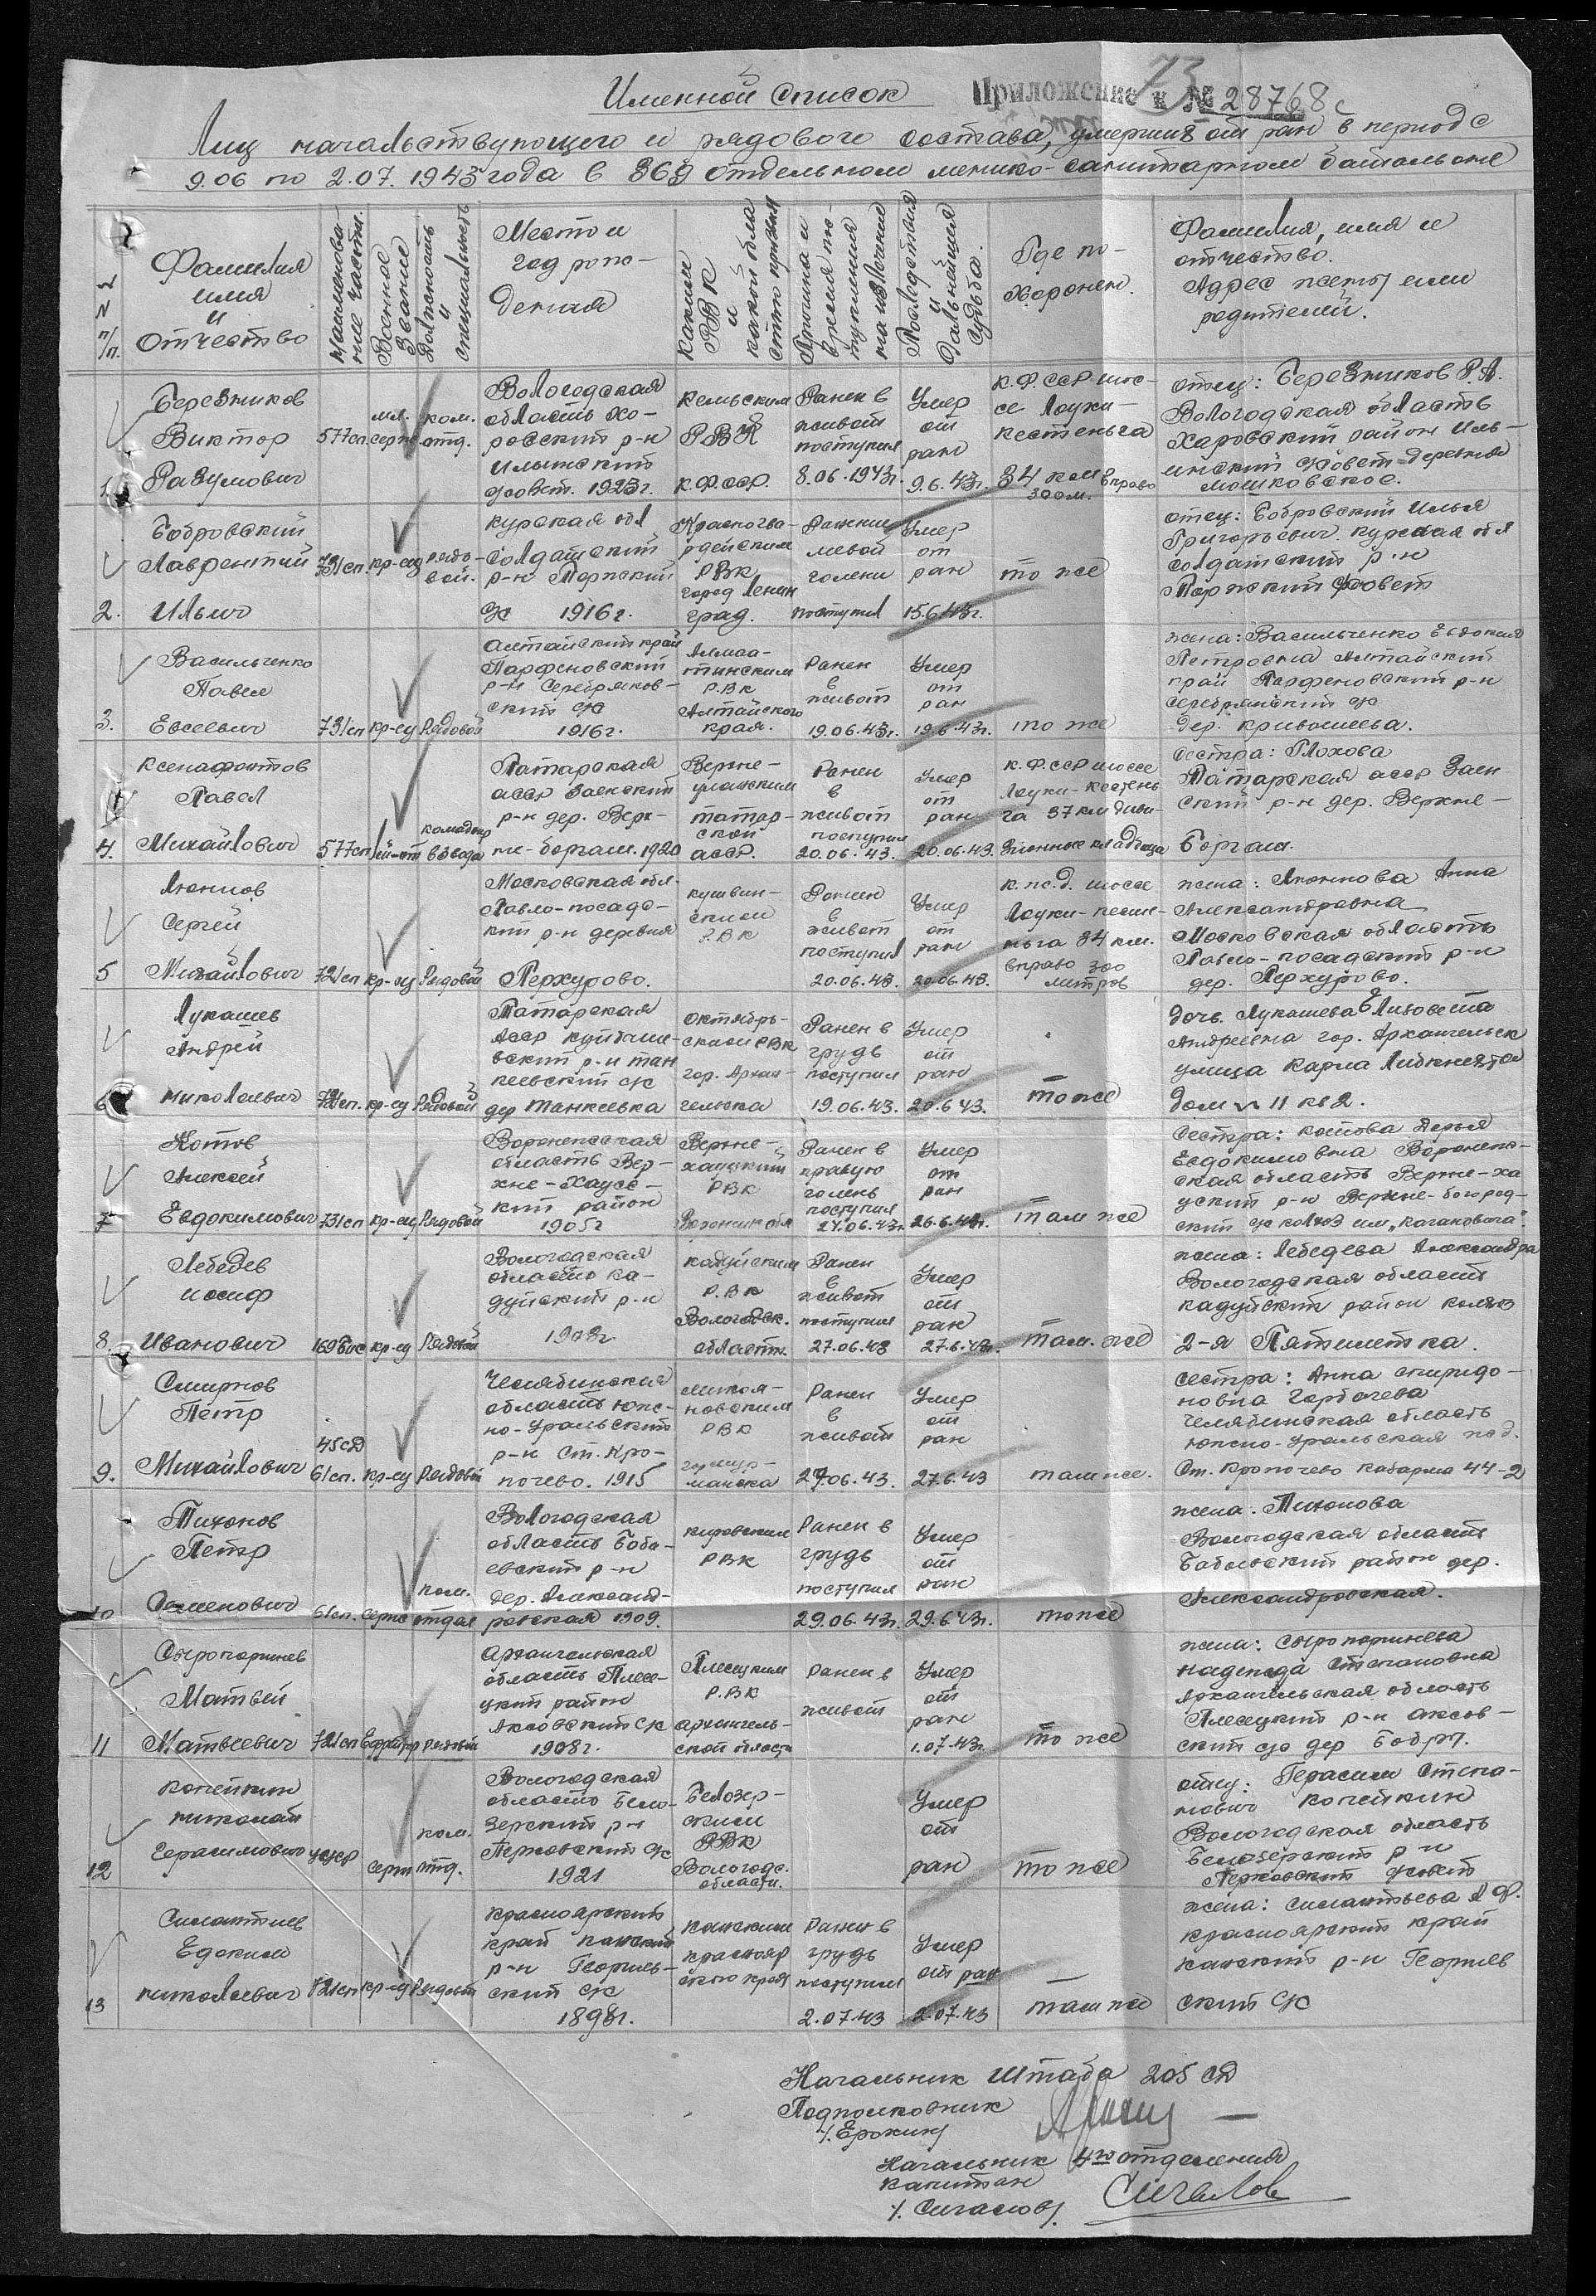 Именной список
Приложение к № 28768с
73
Лиц начальствующего и рядового состава, умерших от ран в период с
9.06 по 2.07. 1943 года в 369 отдельном медико-санитарном батальоне
№ п/п.
Фамилия имя и отчество
Наименование части.
Военное звание
Должность и специальность
Место и год рождения
Каким РВК и какой области призван
Причина и время поступления на излечение
Последствия и дальнейшая судьба.
Где похоронен.
Фамилия, имя и отчество. Адрес жены или родителей.
1.
Березников
Виктор
Разумович
577сп
мл. сержт
ком. отд.
Вологодская
область Хо-
ровский р-н
Ильинский
с/совет. 1923г.
Кемьским
РВК
К.Ф.ССР.
Ранен в
живот
поступил
8.06.1943г.
Умер
от
ран
9.6.43г.
К.Ф.ССР шос-
се Лоухи-
Кестеньга
34 км вправо
300м.
отец: Березников Р.А.
Вологодская область
Харовский район Иль-
инский с/совет деревня
мошковское.
2.
Бобровский
Лаврентий
Ильич
731сп.
кр-ец
рядо-
вой.
Курская обл
Солдатский
р-н
с/с 1916г.
Красногва-
рдейским
РВК
город Ленин
град.
Ранение
левой
голени
поступил
Умер
от
ран
15.6.43г.
то же
отец: Бобровский Илья
Григорьевич. Курская обл
Солдатский р-н
с/совет
3.
Васильченко
Павел
Евсеевич
731сп
кр-ец
Рядовой
Алтайский край
Парфеновский
р-н Серебряков-
ский с/с
1916г.
Алмаа-
тинским
Р.ВК
Алтайского
края.
Ранен
в
живот
19.06.43г.
Умер
от
ран
19.6.43г.
то же
жена: Васильченко Евдокия
Петровна Алтайский
край Парфеновский р-н
Серебрянский с/с
Дер. Кривошеева.
4.
Ксенафонтов
Павел
Михайлович
577сп
лей-нт
командир
взвода
Татарская
АССР Заенский
р-н дер. Верх-
не-боргаш. 1920
Верхне-
ским
татар-
ской
АССР.
Ранен
в
живот
поступил
20.06.43.
Умер
от
ран
20.06.43.
К.Ф.ССР шоссе
Лоухи-Кестень
га 37 км диви-
зионное кладбище
Сестра: Глохова
Татарская АССР Заен
ский р-н дер. Верхне-
Боргаш.
5
Люннов
Сергей
Михайлович
721сп
кр-ец
Рядовой
Московская обл.
Павло-посадс-
кий р-н деревня
Перхурово.
кушвин-
ским
Р.ВК
Ранен
в
живот
поступил
20.06.43.
Умер
от
ран
20.06.43.
к.ж.д. шоссе
Лоухи-кесте-
ньга 34 км.
вправо 300
метров
жена: Люннова Анна
Александровна
Московская область
Павло-посадский р-н
дер. Перхурово.
6
Лукашев
Андрей
Николаевич
721сп.
кр-ец
Рядовой
Татарская
АССР Куйбыше-
вский р-н тан
кеевский с/с
дер Танкеевка
Октябрь-
ским РВК
гор. Архан-
гельска
Ранен в
грудь
поступил
19.06.43.
Умер
от
ран
20.6.43.
то же
дочь. Лукашева Елизовета
Андреевна гор. Архангельск
улица Карла Либкнехта
дом № 11 кв 2.
7
Котов
Алексей
Евдокимович
731сп
кр-ец
Рядовой
Воронежская
область Вер-
хне-Хаус-
кий район
1905г
Верхне-
хауский
РВК
Воронеж обл
Ранен в
правую
голень
поступил
24.06.43г.
Умер
от
ран
26.6.43г.
там же
Сестра: Котова Дарья
Евдокимовна Воронеж-
ская область Верхне-ха
уский р-н Верхне-богород-
ский с/с колхоз им „Кагановича".
8.
Лебедев
Иосиф
Иванович
169
кр-ец
Рядовой
Вологодская
область Ка-
дуйский р-н
1908г.
Кадуйским
Р.ВК
Вологодск.
области.
Ранен
в
живот
поступил
27.06.43
Умер
от
ран
27.6.43г.
там. же
жена: Лебедева Александра
Вологодская область
Кадуйский район колхоз
2-я Пятилетка.
9.
Смирнов
Петр
Михайлович
45сд
61сп.
кр-ец
Рядовой
Челябинская
область Юж-
но-Уральский
р-н Ст. Кро-
почево. 1915
новским
РВК
манска
Ранен
в
живот
27.06.43.
Умер
от
ран
27.6.43
там же.
Сестра: Анна Спиридо-
новна Горбачева
Челябинская область
Южно-Уральская ж.д.
Ст. Кропочево казарма 44-2
10
Тихонов
Петр
Семенович
61сп.
Серж
пом.
отдел
Вологодская
область Баба-
евский р-н
дер. Александ-
ровская 1909.
Кировским
РВК
Ранен в
грудь
поступил
29.06.43г.
Умер
от
ран
29.6.43г.
то же
жена. Тихонова
Вологодская область
Бабаевский район дер.
Александровская.
11
Сыропоршнев
Матвей
Матвеевич
721сп
Ефрейтор
рядовой
Архангельская
область Плесе-
цкий район
Аксовский с/с
1908г.
Плесецким
Р.ВК
Архангель-
ской области
Ранен в
живот
Умер
от
ран
1.07.43г.
то же
жена: Сыропоршнева
Надежда Степановна
Архангельская область
Плесецкий р-н Аксов-
ский с/с дер Бобры.
12
Копейкин
николай
Герасимович
серж
ком.
отд.
Вологодская
область Бело-
зерский р-н
Перковский с/с
1921
Белозер-
ским
РВК
Вологодс.
области.
Умер
от
ран
то же
отец: Герасим Степа-
нович Копейкин
Вологодская область
Белозерский р-н
Перковский с/совет
13
Силантиев
Едоким
николаевич
721сп
кр-ец
Рядовой
Красноярский
край Канский
р-н Георгиев-
ский с/с
1898г.
Канским
краснояр
ского края
Ранен в
грудь
поступил
2.07.43
Умер
от ран
2.07.43
там же
жена: Силантьева А Ф.
Красноярский край
Канский р-н Георгиев
ский с/с
Начальник Штаба 205 СД
Подполковник
/. Ерохин/
Начальник 4го отделения
капитан
/. Сигалов/. Сигалов